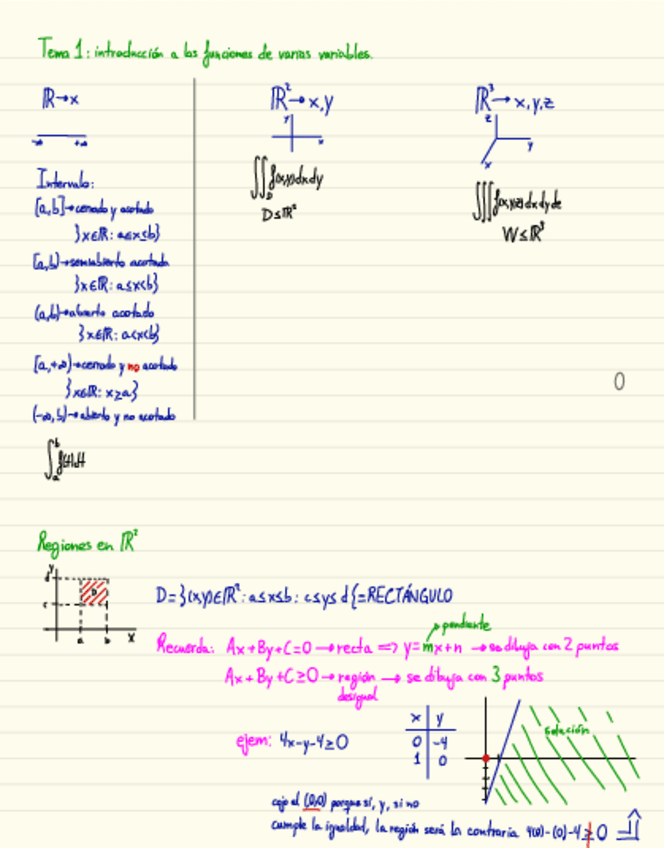 Tema 1: introducción a las funciones de varias variables.
ℝ→x
-∞ +∞
Intervalo:
[a,b]→cerrado y acotado
}x∈ℝ: a≤x≤b}
[a,b)→semiabierto acotado
}x∈ℝ: a≤x<b}
(a,b)→abierto acotado
}x∈ℝ: a<x<b}
[a,+∞)→cerrado y no acotado
}x∈ℝ: x≥a}
(-∞,b)→abierto y no acotado
∫ₐᵇ f(t)dt
ℝ²→x,y
y x
∬_D f(x,y)dxdy
D≤ℝ²
ℝ³→x,y,z
z y x
∭f(x,y,z)dxdydz
W≤ℝ³
0
Regiones en ℝ²
y d c D a b x
D=}(x,y)∈ℝ²: a≤x≤b: c≤y≤d{=RECTÁNGULO
pendiente
Recuerda: Ax+By+C=0→recta⇒y=mx+n→se dibuja con 2 puntos
Ax+By+C≥0→región→se dibuja con 3 puntos
desigual
ejem: 4x-y-4≥0
x y
0 -4
1 0
solución
cojo el (0,0) porque sí, y, si no
cumple la igualdad, la región será la contraria 4(0)-(0)-4≥0